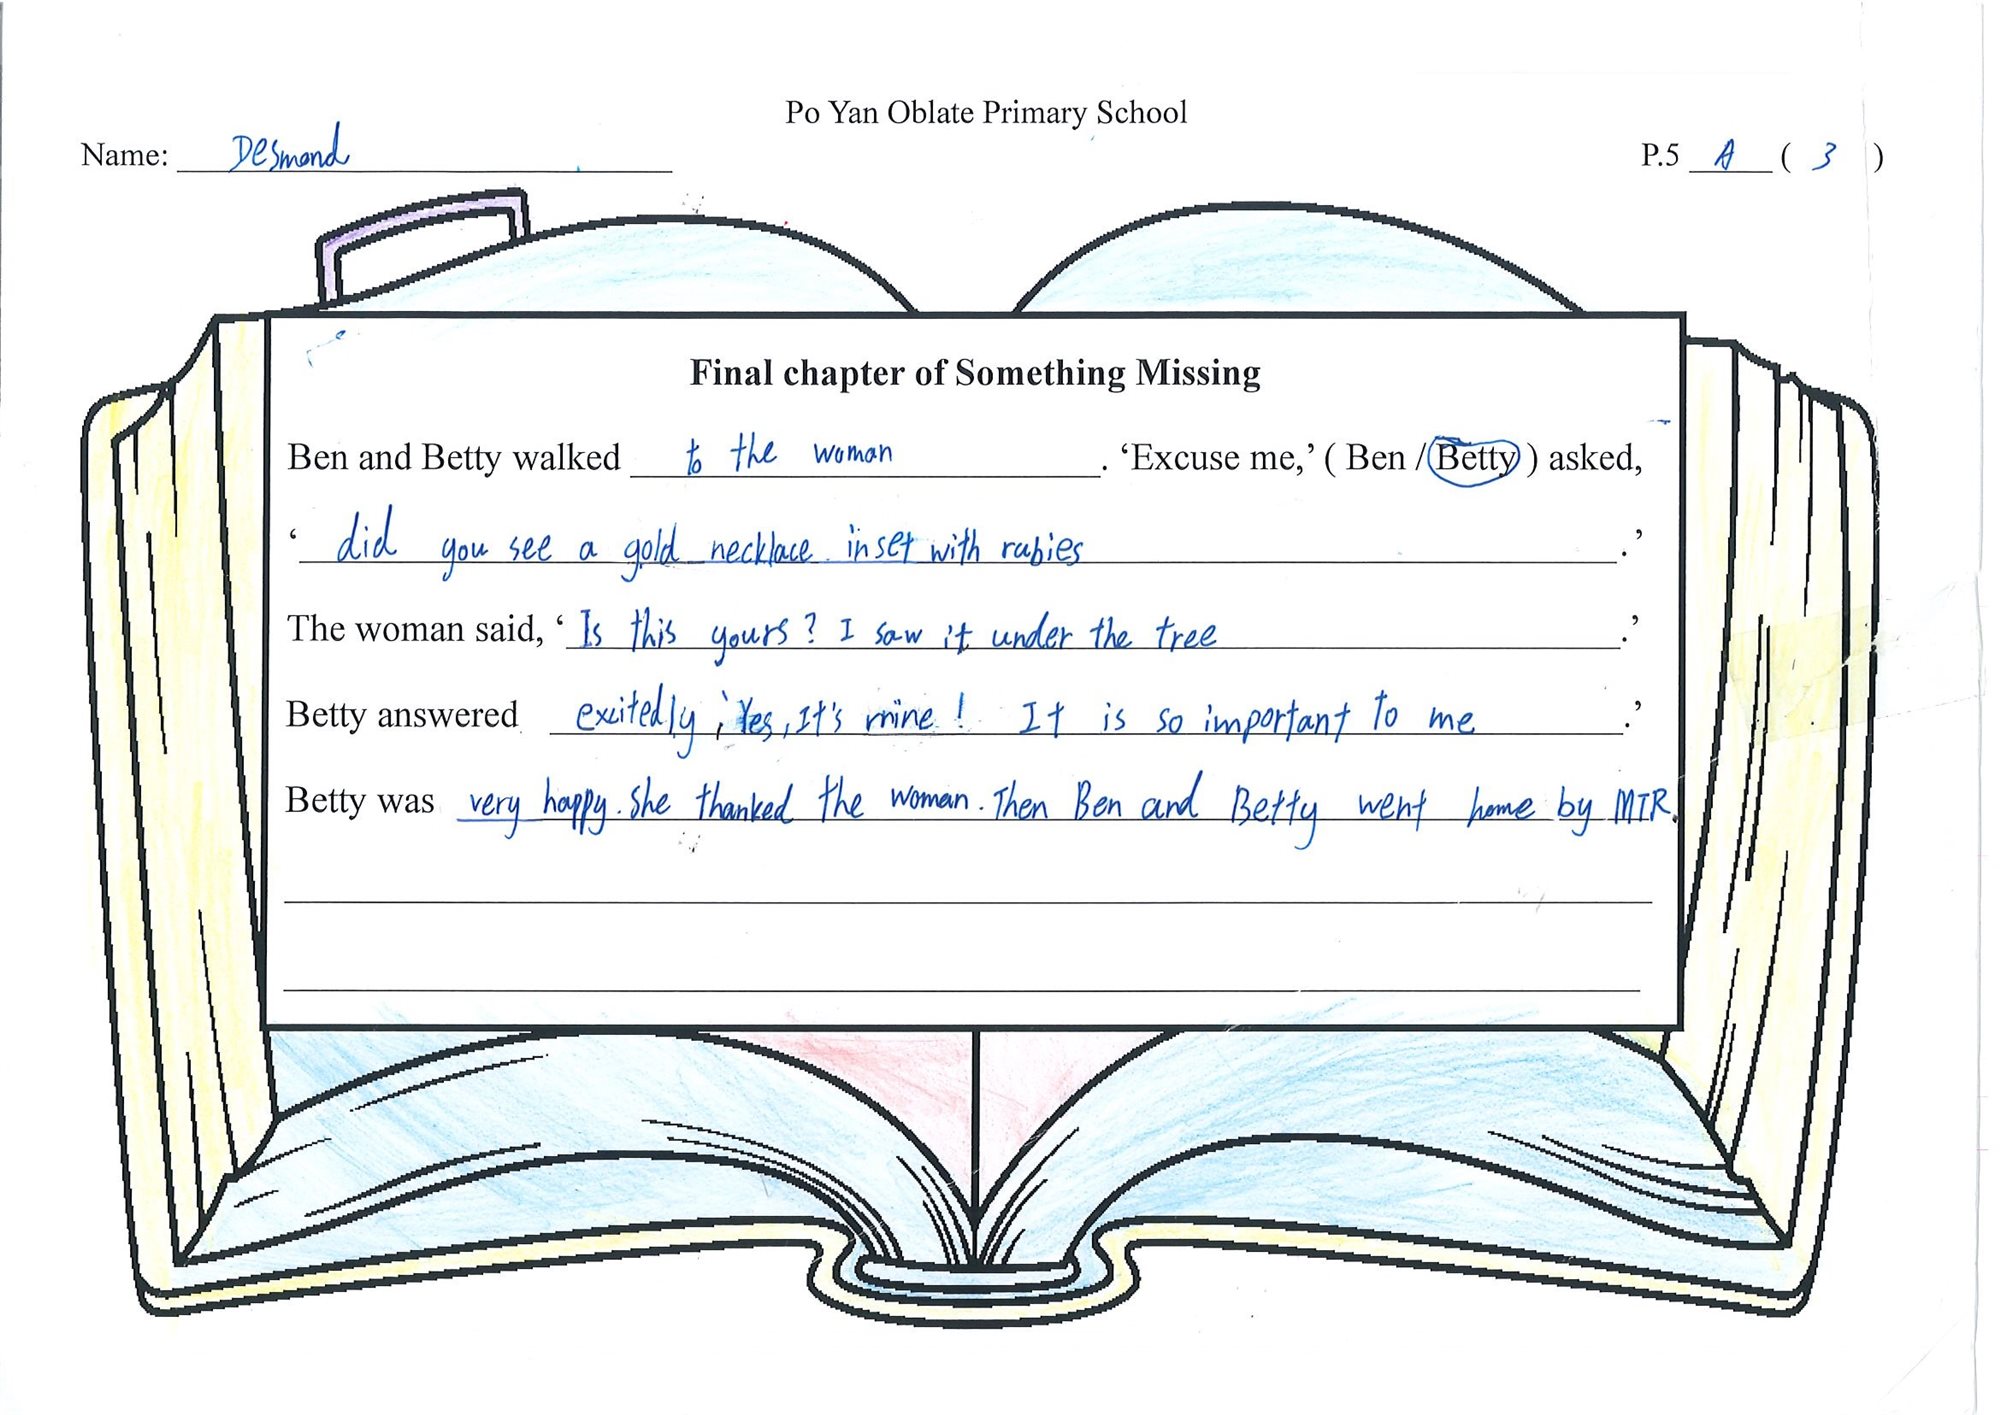 Po Yan Oblate Primary School
Name: Desmond P.5 A ( 3 )
Final chapter of Something Missing
Ben and Betty walked to the woman . ‘Excuse me,’ ( Ben / Betty ) asked,
‘ did you see a gold necklace inset with rubies .’
The woman said, ‘ Is this yours? I saw it under the tree .’
Betty answered excitedly, ‘Yes, It's mine! It is so important to me .’
Betty was very happy. She thanked the woman. Then Ben and Betty went home by MTR.